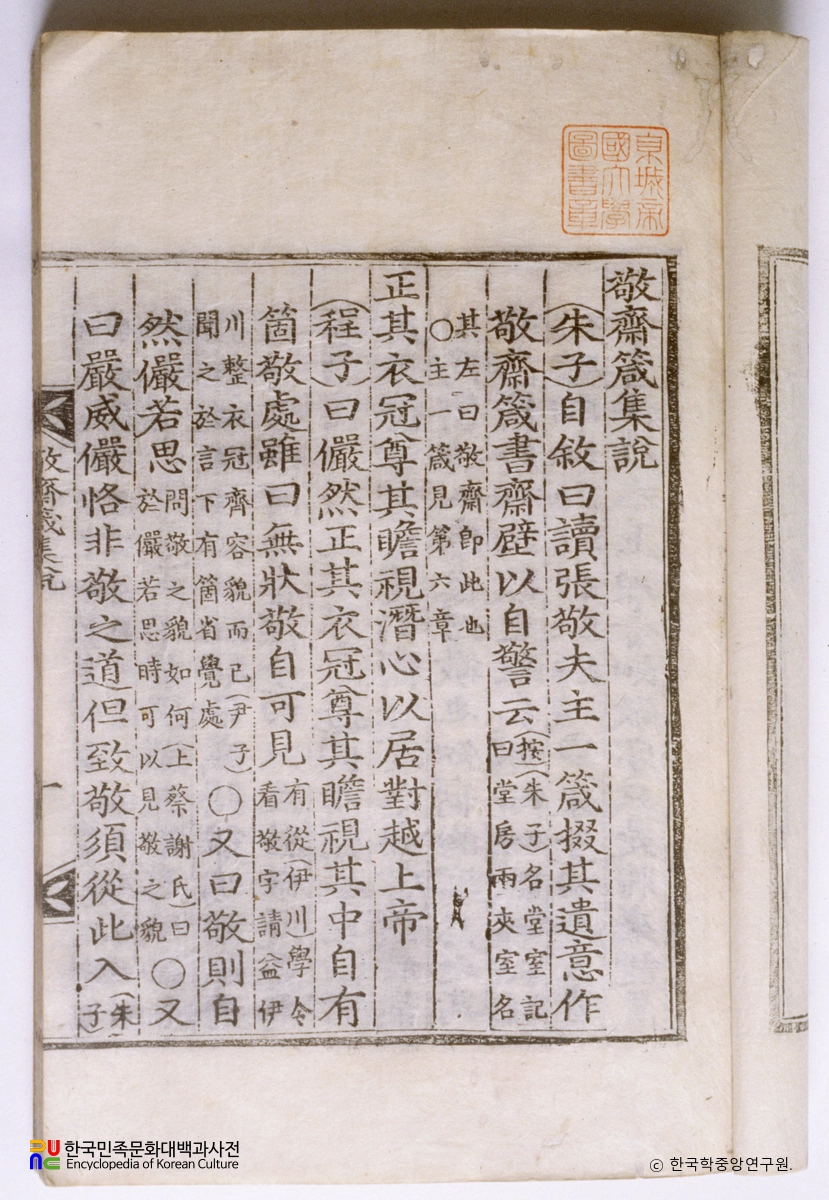 京城帝
國大學
圖書章
敬齋箴集說
(朱子)自敘曰讀張敬夫主一箴掇其遺意作
敬齋箴書齋壁以自警云(按)(朱子)名堂室記
曰堂房兩夾室名
其左曰敬齋卽此也
○主一箴見第六章
正其衣冠尊其瞻視潛心以居對越上帝
(程子)曰儼然正其衣冠尊其瞻視其中自有
箇敬處雖曰無狀敬自可見有從(伊川)學令
看敬字請益伊
川整衣冠齊容貌而已(尹子)
聞之於言下有箇省覺處○又曰敬則自
然儼若思問敬之貌如何(上蔡謝氏)曰
於儼若思時可以見敬之貌○又
曰嚴威儼恪非敬之道但致敬須從此入(朱
子)
敬齋箴集說
一
한국민족문화대백과사전
Encyclopedia of Korean Culture
© 한국학중앙연구원.